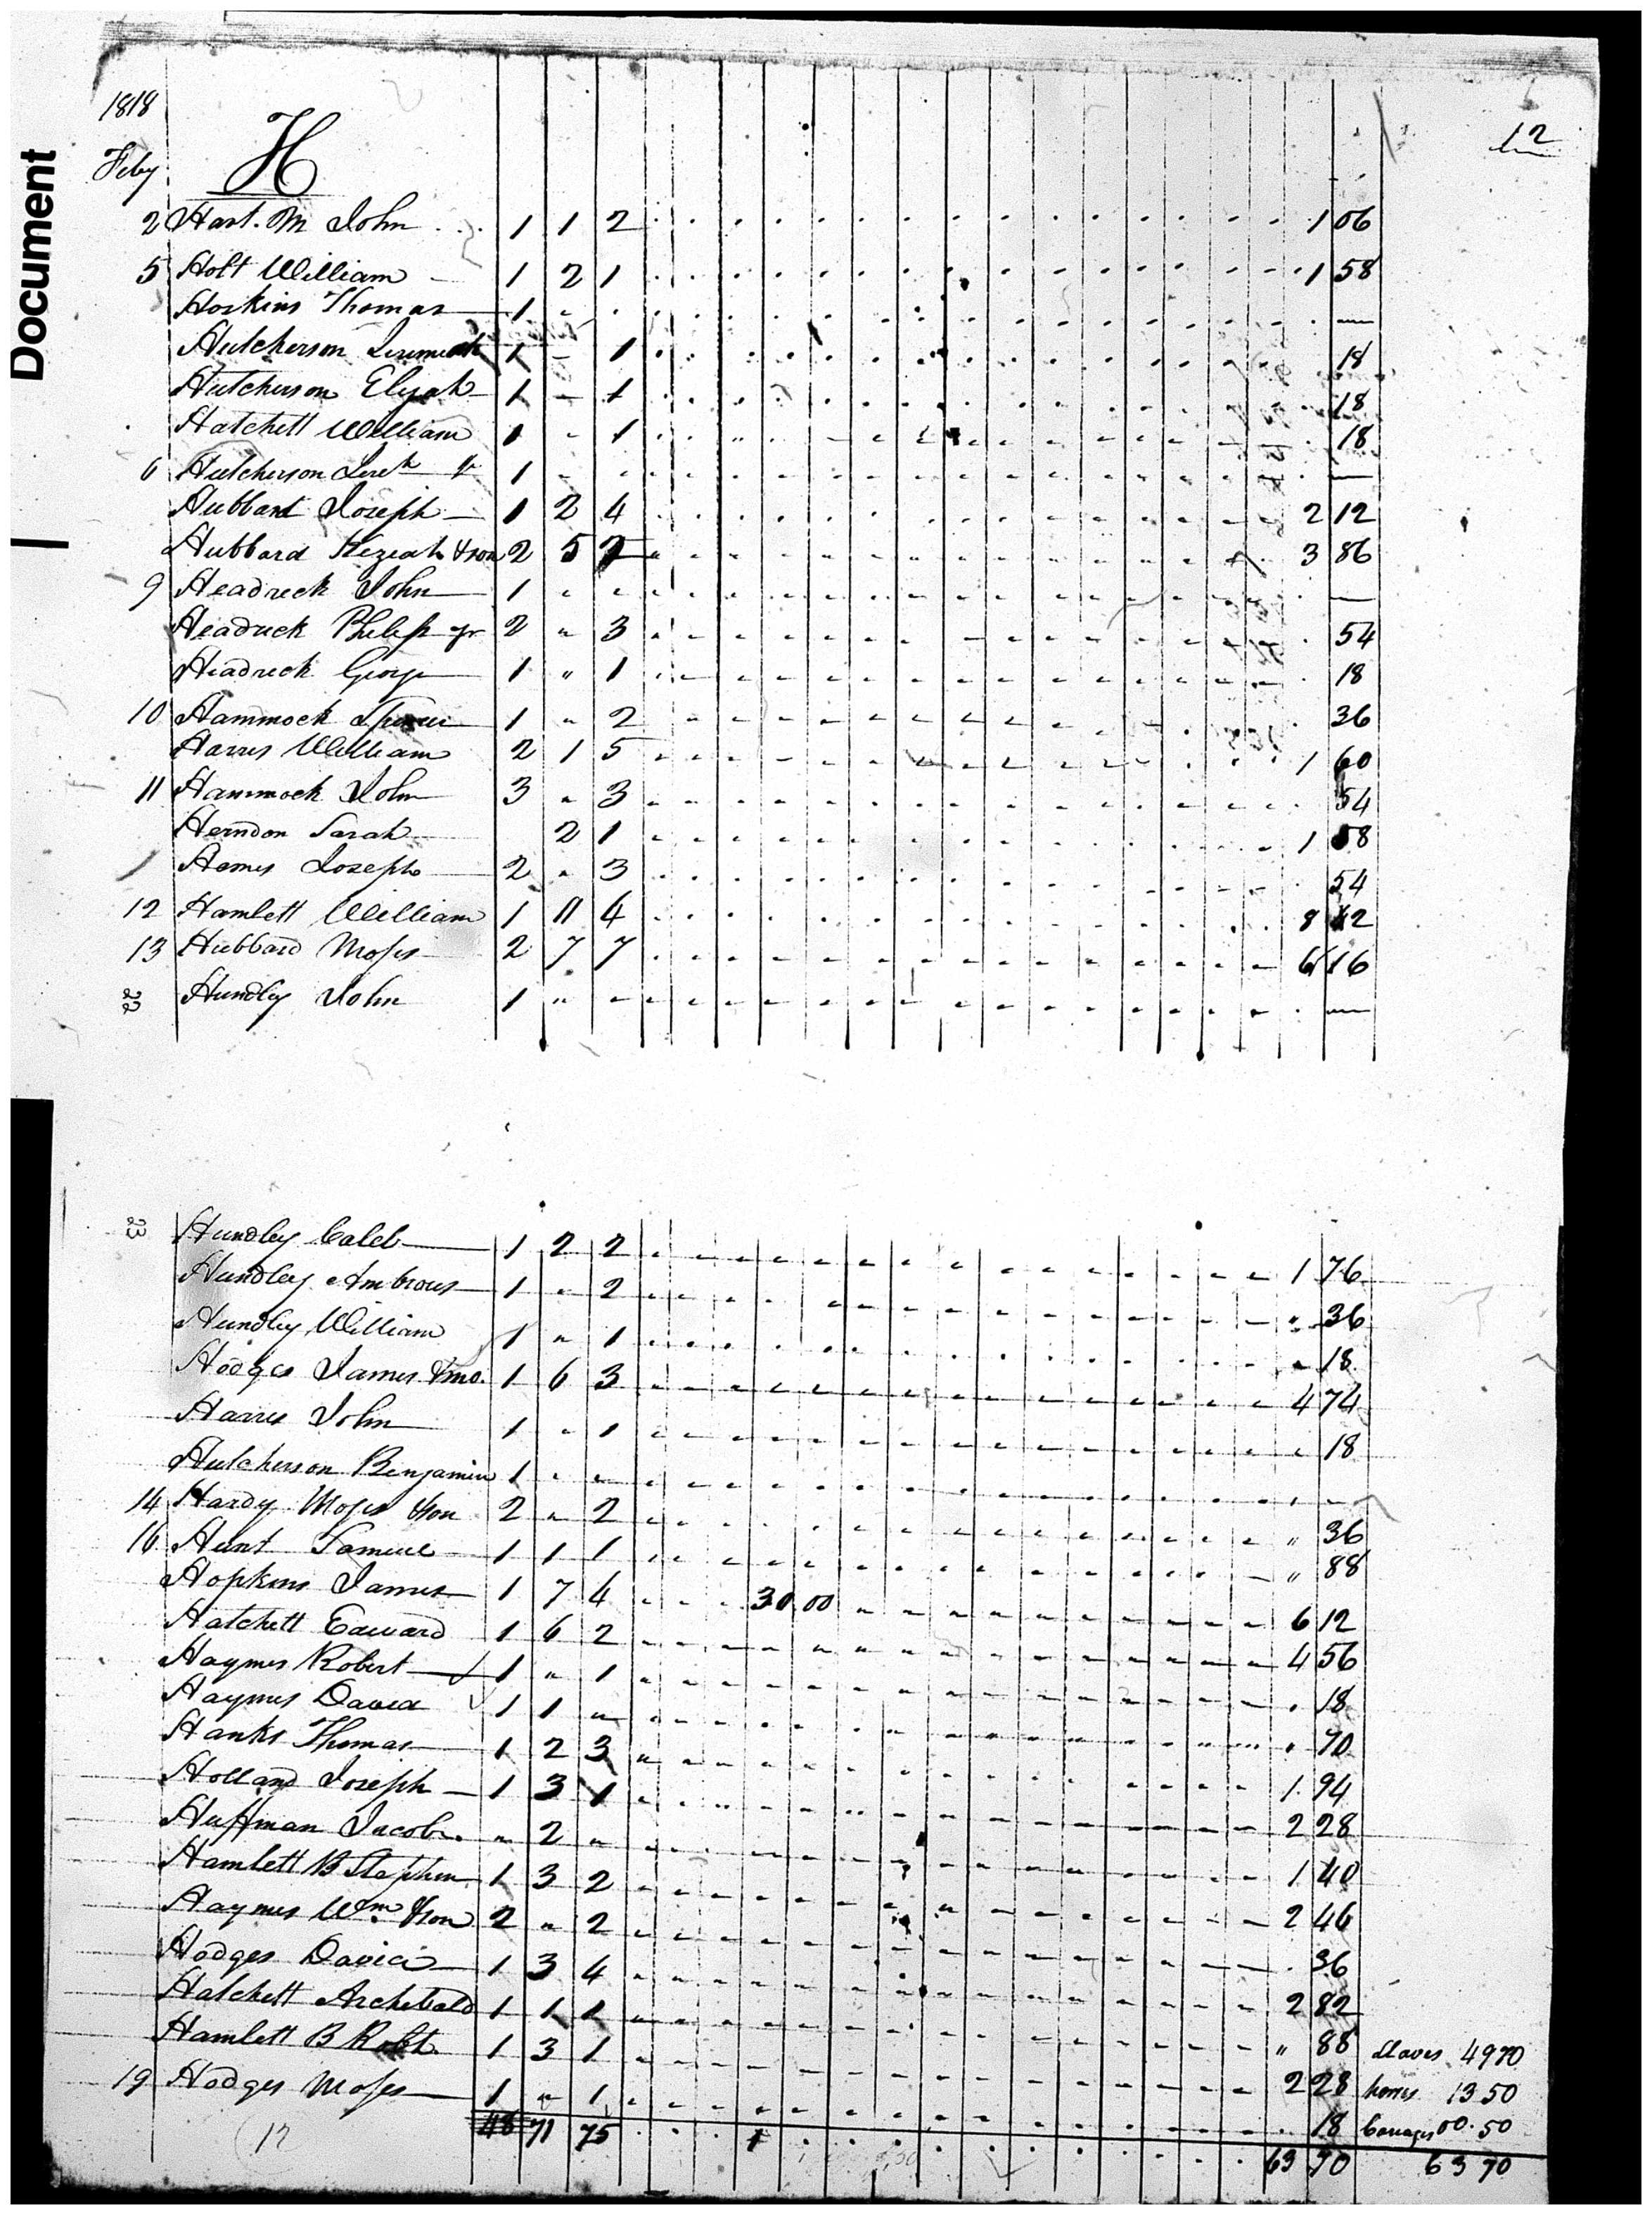 Document
1818
H
12
Feby
2 Hart. M John 1 1 2 1 06
5 Holt William 1 2 1 1 58
Hoskins Thomas 1 —
Hutcherson Jeremiah 1 - 1 18
Hutcherson Elijah 1 - 1 18
Hatchett William 1 - 1 18
6 Hutcherson Jereh 1 —
Hubbard Joseph 1 2 4 2 12
Hubbard Keziah & son 2 5 3 86
9 Headreck John 1 —
Headrick Philip Jr 2 " 3 54
Headreck George 1 " 1 18
10 Hammock 1 " 2 36
Harris William 2 1 5 1 60
11 Hammock John 3 " 3 54
Herndon Sarah 2 1 1 58
Hames Joseph 2 " 3 54
12 Hamlett William 1 11 4 8 42
13 Hubbard Moses 2 7 7 6 16
22 Hundley John 1 " —
23 Hundley Caleb 1 2 2 1 76
Hundley Ambrous 1 - 2 " 36
Hundley William 1 " 1 18
Hodges James 1 6 3 4 74
Harris John 1 - 1 18
Hutcherson Benjamin 1 —
14 Hardy Moses & son 2 " 2 " 36
16 Hunt Samuel 1 1 1 " 88
Hopkins James 1 7 4 30 00 6 12
Hatchett Edward 1 6 2 4 56
Haymes Robert 1 " 1 18
Haymes David 1 1 " 70
Hanks Thomas 1 2 3 1 94
Holland Joseph 1 3 1 2 28
Huffman Jacob " 2 " 1 40
Hamlett B Stephen 1 3 2 2 46
Haymes Wm & son 2 " 2 36
Hodges David 1 3 4 2 82
Hatchett Archibald 1 1 1 " 88
Hamlett B Robt. 1 3 1 2 28
19 Hodges Moses 1 " 1 18
Slaves 49 70
horses 13 50
Carriages 00.50
48 71 75 1 63 70 63 70
12